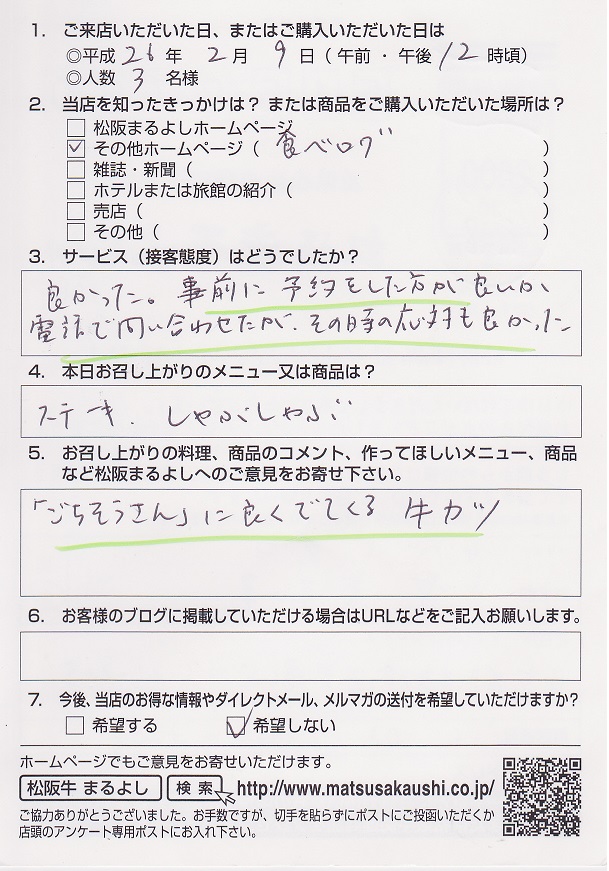 1. ご来店いただいた日、またはご購入いただいた日は
◎平成 26 年 2 月 9 日(午前・午後 12 時頃)
◎人数 3 名様
2. 当店を知ったきっかけは? または商品をご購入いただいた場所は?
□ 松阪まるよしホームページ
☑ その他ホームページ( 食べログ )
□ 雑誌・新聞( )
□ ホテルまたは旅館の紹介( )
□ 売店( )
□ その他( )
3. サービス(接客態度)はどうでしたか?
良かった。事前に予約をした方が良いか
電話で問い合わせたが、その時の応対も良かった
4. 本日お召し上がりのメニュー又は商品は?
ステーキ. しゃぶしゃぶ
5. お召し上がりの料理、商品のコメント、作ってほしいメニュー、商品
など松阪まるよしへのご意見をお寄せ下さい。
「ごちそうさん」に良くでてくる 牛カツ
6. お客様のブログに掲載していただける場合はURLなどをご記入お願いします。
7. 今後、当店のお得な情報やダイレクトメール、メルマガの送付を希望していただけますか?
□ 希望する ☑ 希望しない
ホームページでもご意見をお寄せいただけます。
松阪牛 まるよし 検 索 http://www.matsusakaushi.co.jp/
ご協力ありがとうございました。お手数ですが、切手を貼らずにポストにご投函いただくか
店頭のアンケート専用ポストにお入れ下さい。